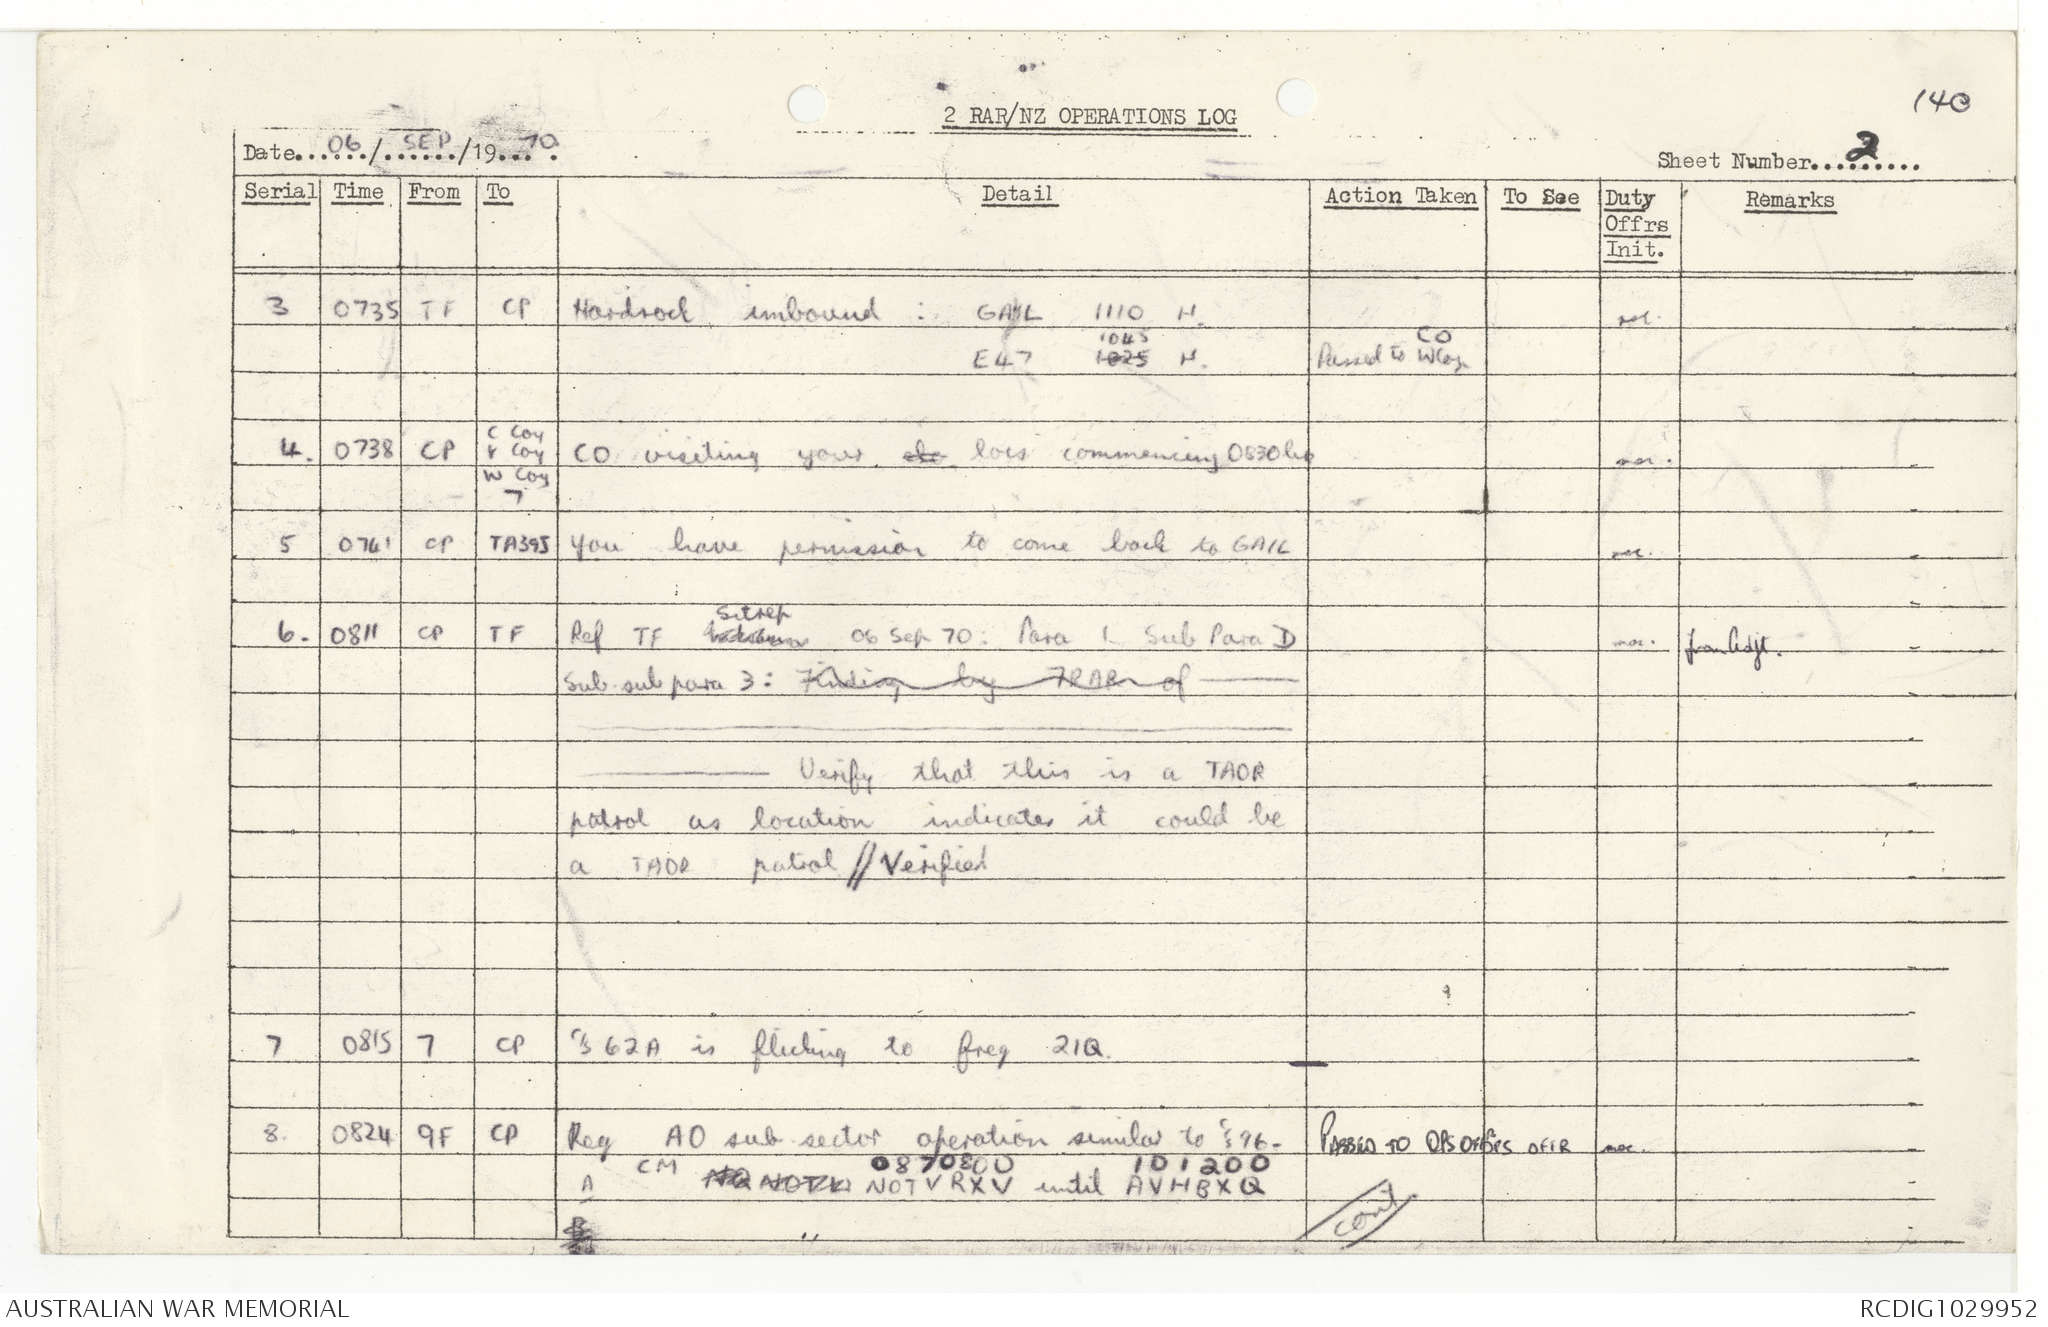 140
2 RAR/NZ OPERATIONS LOG
Date......06/......SEP/19...70.
Sheet Number...2......
Serial Time From To Detail Action Taken To See Duty Offrs Init. Remarks
3 0735 TF CP Hardrock imbound : GAIL 1110 H.
1045 CO
E47 1025 H. Passed to W Coy
C Coy
4. 0738 CP V Coy CO visiting your locs commencing 0830 hrs
W Coy
7
5 0741 CP TA395 You have permission to come back to GAIL
Sitrep
6. 0811 CP TF Ref TF 06 Sep 70: Para 1 Sub Para D from Adjt.
Sub-sub para 3: Finding by 7RAR of
Verify that this is a TAOR
patrol as location indicates it could be
a TAOR patrol // Verified
7 0815 7 CP C/S 62A is flicking to freq 21Q.
8. 0824 9F CP Req AO sub sector operation similar to C/S 96- PASSED TO OPS OFFRS OF1R
CM 0870800 101200
A NOTVRXV until AVHBXQ
B "
cont
AUSTRALIAN WAR MEMORIAL
RCDIG1029952